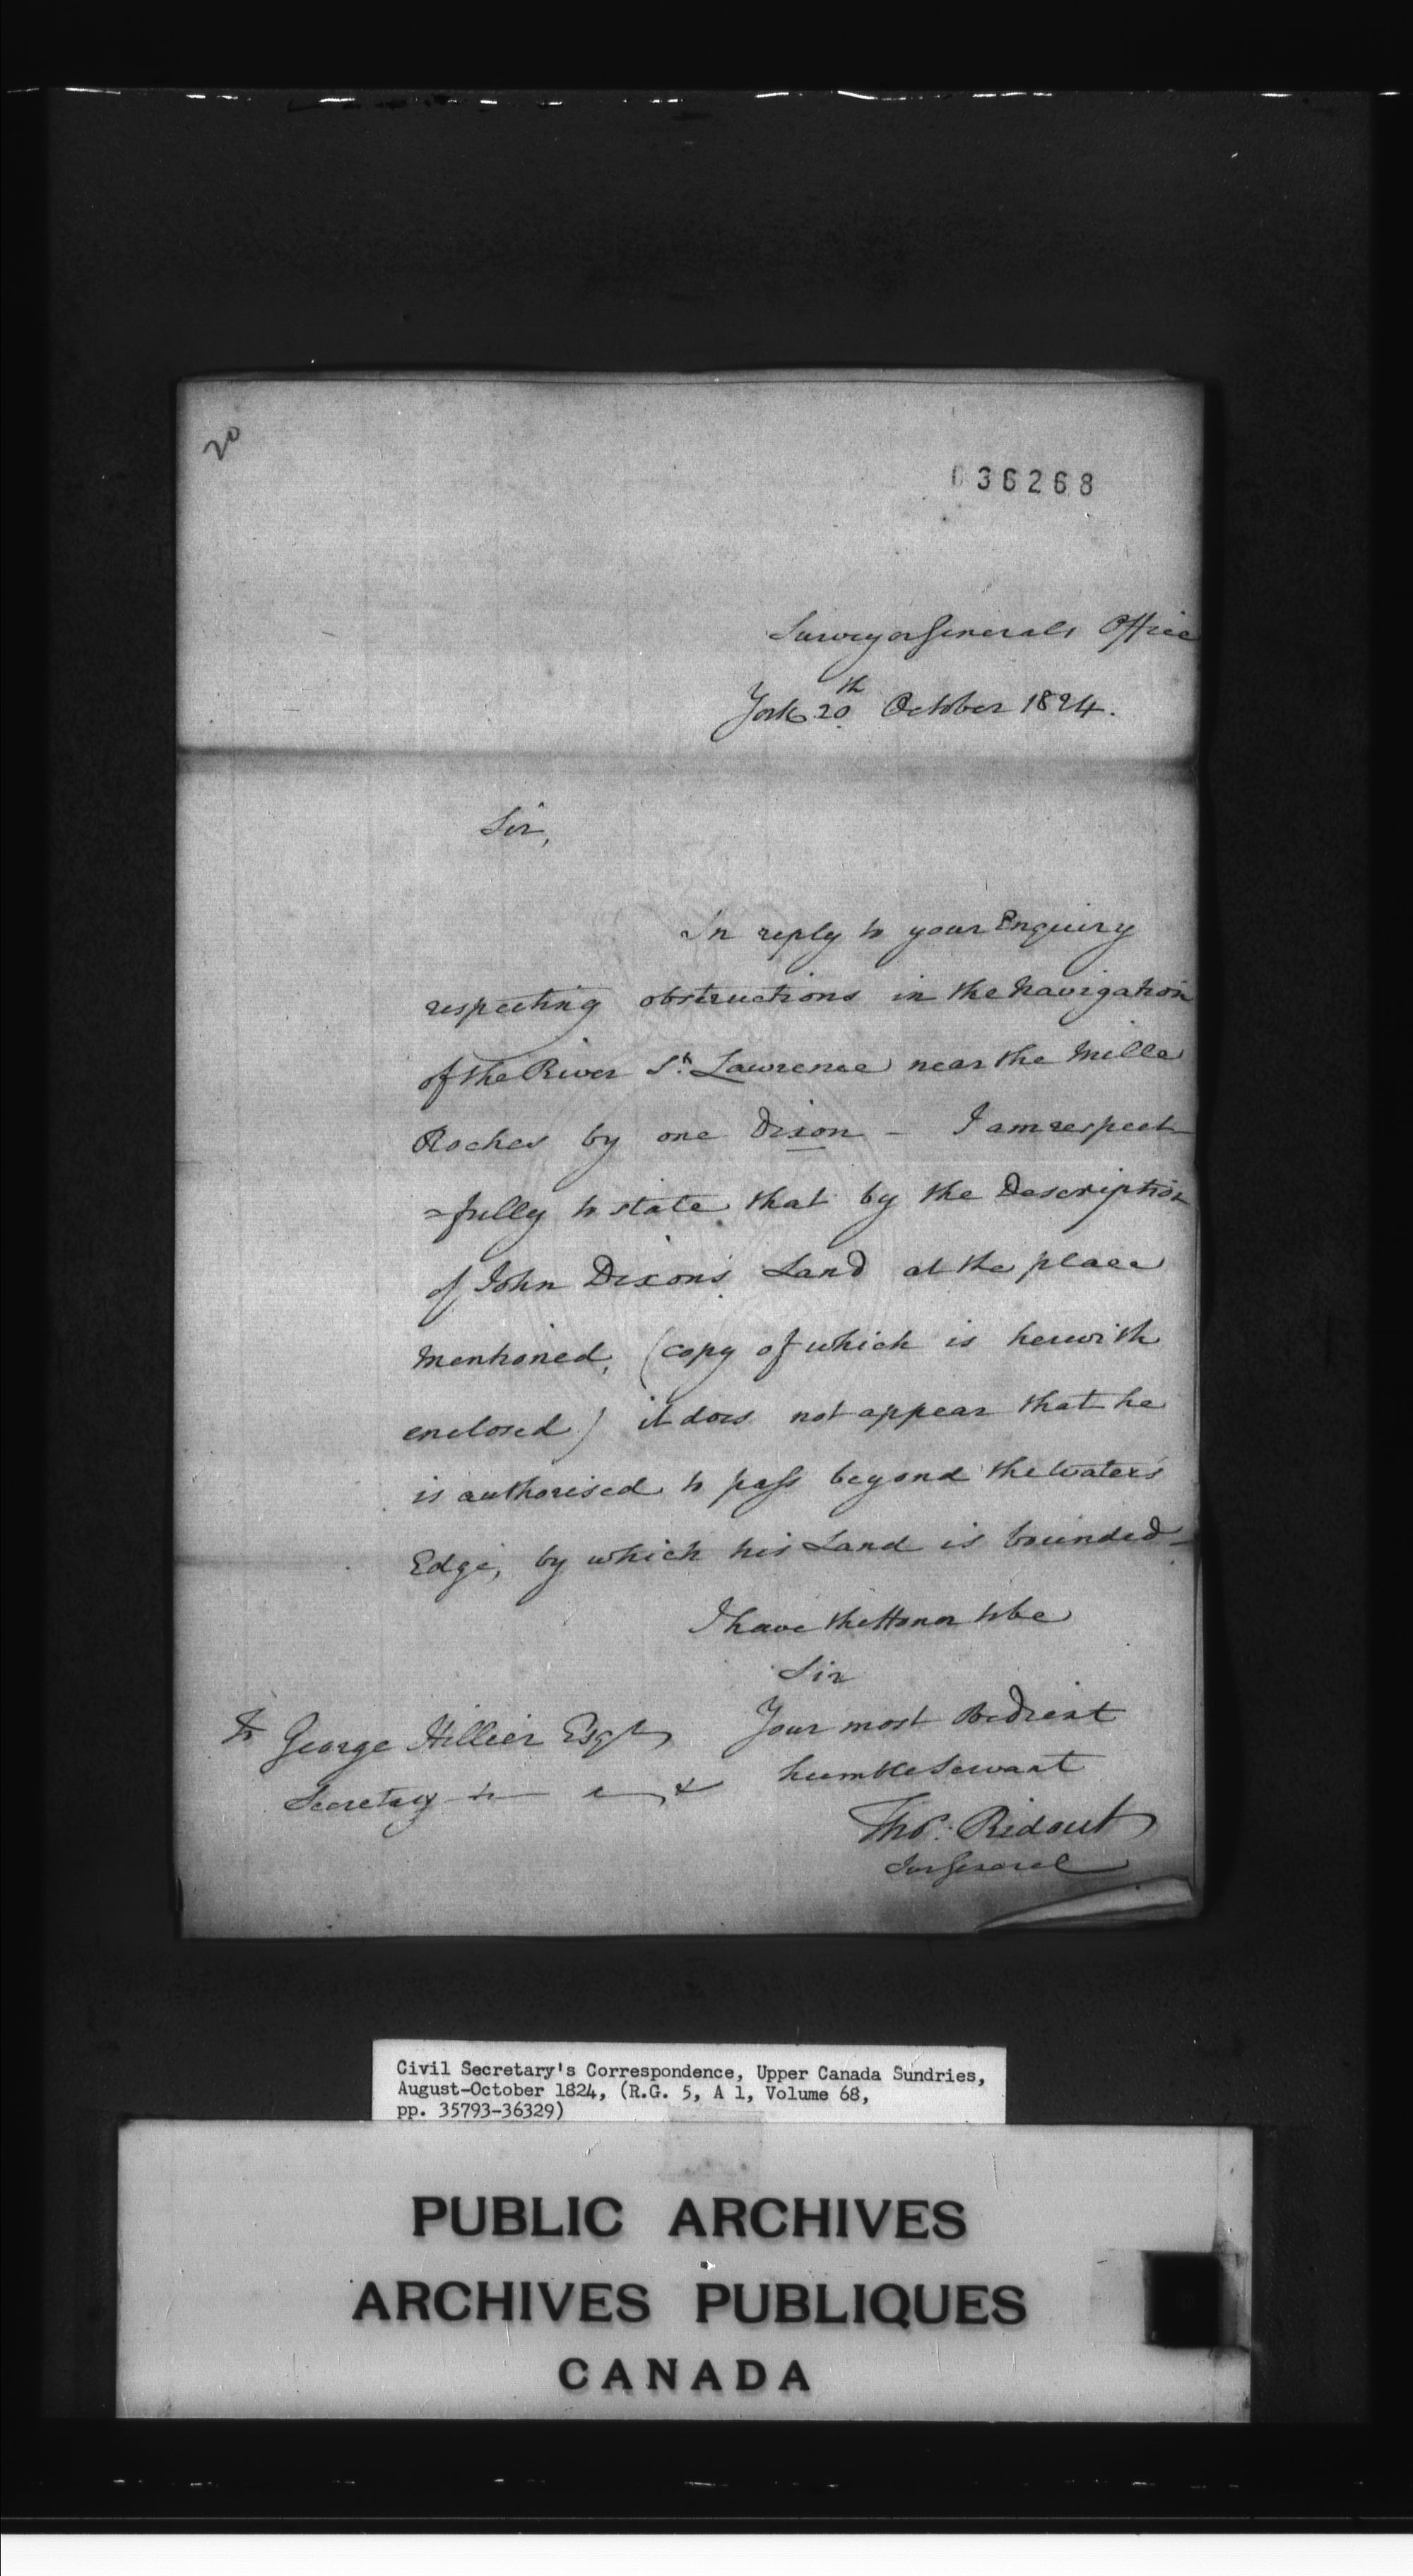 20
036268
Surveyor Generals Office
York 20th October 1824.
Sir,
In reply to your Enquiry
respecting obstructions in the Navigation
of the River St. Lawrence near the Mille
Roches by one Dixon - I am respect
=fully to state that by the Description
of John Dixon's Land at the place
mentioned, (copy of which is herewith
enclosed) it does not appear that he
is authorised to pass beyond the waters
Edge, by which his Land is bounded -
I have the Honor to be
Sir
Your most obedient
humble Servant
Thos. Ridout
Sur General
To George Hillier Esqr
Secretary &
Civil Secretary's Correspondence, Upper Canada Sundries,
August-October 1824, (R.G. 5, A 1, Volume 68,
pp. 35793-36329)
PUBLIC ARCHIVES
ARCHIVES PUBLIQUES
CANADA